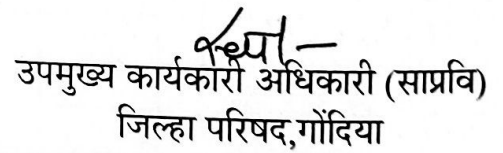 उपमुख्य कार्यकारी अधिकारी (साप्रवि)
जिल्हा परिषद,गोंदिया